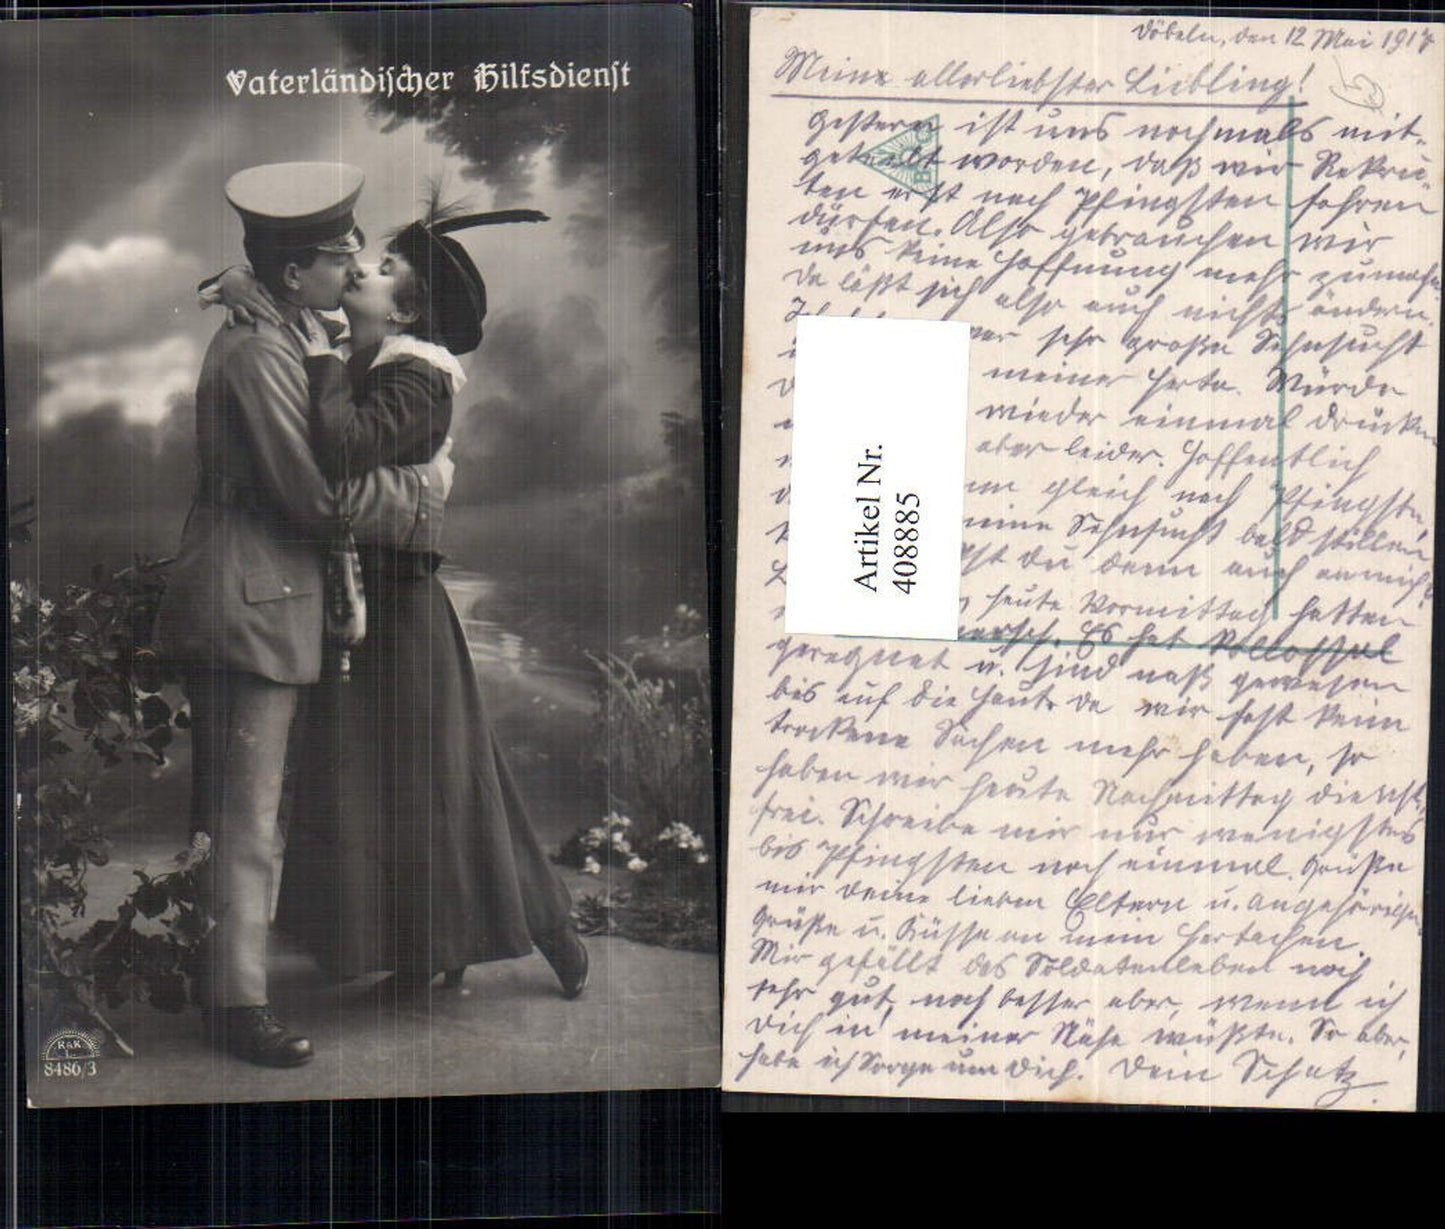 Vaterländischer Hilfsdienst
R&K
L.
8486/3
Döbeln, den 12 Mai 1917
Meine allerliebster Liebling!
Gestern ist uns nochmals mit-
geteilt worden, daß wir Rekru-
ten erst nach Pfingsten fahren
dürfen. Also gebrauchen wir
uns keine Hoffnung mehr zumachen
da läßt sich also auch nichts ändern.
sehr große Sehnsucht
meiner Herta. Würde
wieder einmal drücken
aber leider. Hoffentlich
gleich nach Pfingsten
meine Sehnsucht bald stillen
du denn auch an mich?
heute Vormittag hatten
Es hat kollossal
geregnet u. sind naß gewesen
bis auf die Haut. da wir fast keine
trockene Sachen mehr haben, so
haben wir heute Nachmittag dienst
frei. Schreibe mir nur wenigstens
bis Pfingsten noch einmal. Grüße
mir deine lieben Eltern u. angehörigen
Grüße u. Küsse an mein Hertachen.
Mir gefällt das Soldatenleben noch
sehr gut, noch besser aber, wenn ich
dich in meiner Nähe wüßte. So aber,
habe ich Sorge um dich. Dein Schatz.
Artikel Nr.
408885